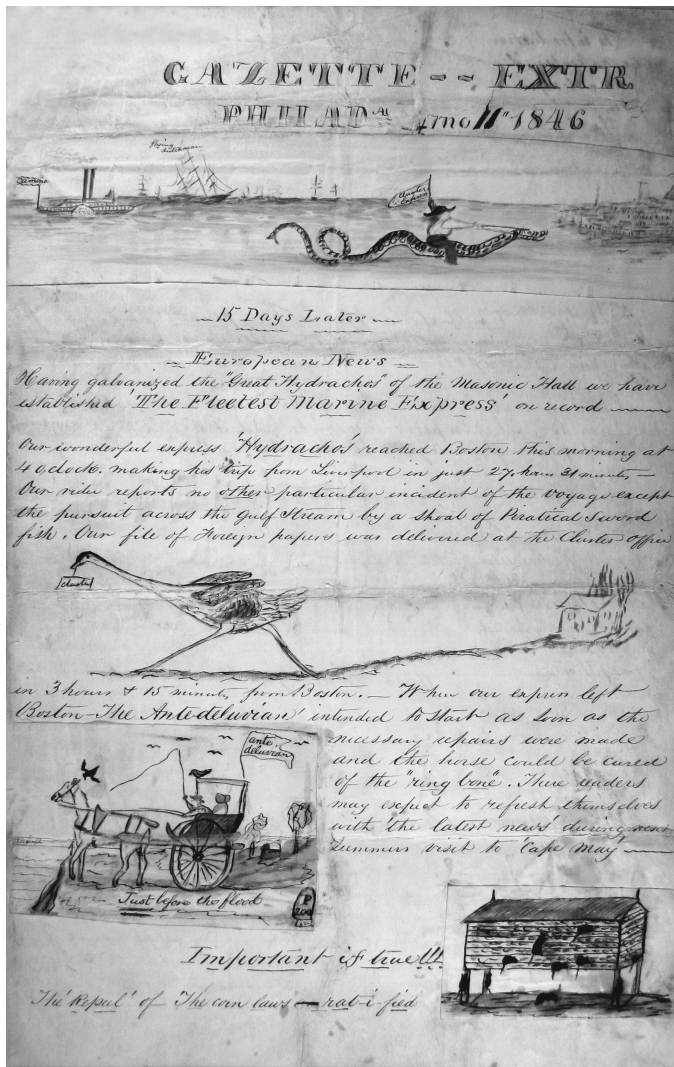 GAZETTE -- EXTR
PHILADA 4mo 11" 1846
Flying dutchman
Cluster Express
15 Days Later
European News
Having galvanized the "Great Hydrachos" of the Masonic Hall we have
established 'The Fleetest Marine Express' on record
Our wonderful express 'Hydracho's reached Boston this morning at
4 oclock. making his trip from Liverpool in just 27 hours 31 minutes —
Our rider reports no other particular incident of the voyage except
the pursuit across the Gulf Stream by a shoal of Piratical Sword
fish. Our file of Foreign papers was delivered at the Cluster office
cluster
in 3 hours & 15 minutes from Boston. — When our express left
Boston - The Ante-deluvian' intended to start as soon as the
necessary repairs were made
and the horse could be cured
of the "ring bone". There readers
may expect to refresh themselves
with 'the latest news' during next
Summers visit to Cape May
ante deluvian
Just before the flood
P
200
Important if true!!!
The 'Repeal' of The corn laws — rat-i-fied